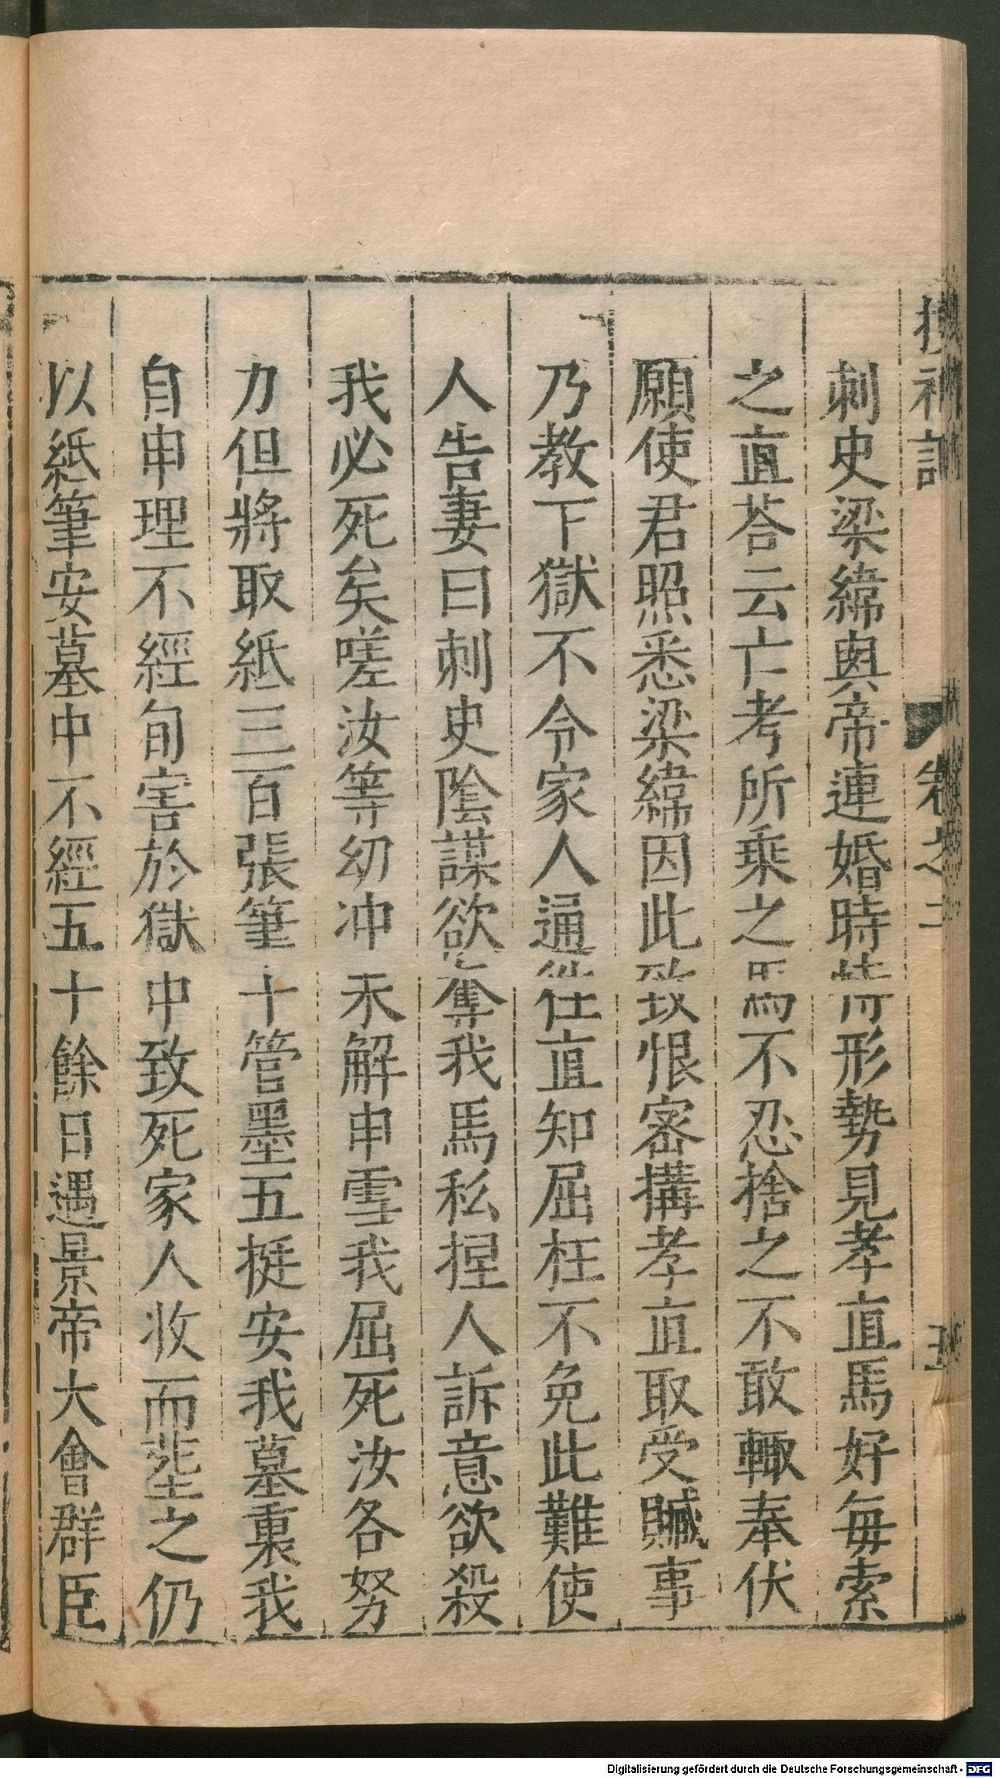 搜神記 卷之二 五
刺史梁緯與帝連婚時恃形勢見孝直馬好每索
之直荅云亡考所乗之馬不忍捨之不敢輙奉伏
願使君照悉梁緯因此致恨密搆孝直取受贓事
乃教下獄不令家人通徃直知屈枉不免此難使
人告妻曰刺史陰謀欲奪我馬私捏人訴意欲殺
我必死矣嗟汝等幼冲未解申雪我屈死汝各努
力但將取紙三百張筆十管墨五挺安我墓裏我
自申理不經旬害於獄中致死家人收而塟之仍
以紙筆安墓中不經五十餘日遇景帝大會群臣
Digitalisierung gefördert durch die Deutsche Forschungsgemeinschaft - DFG